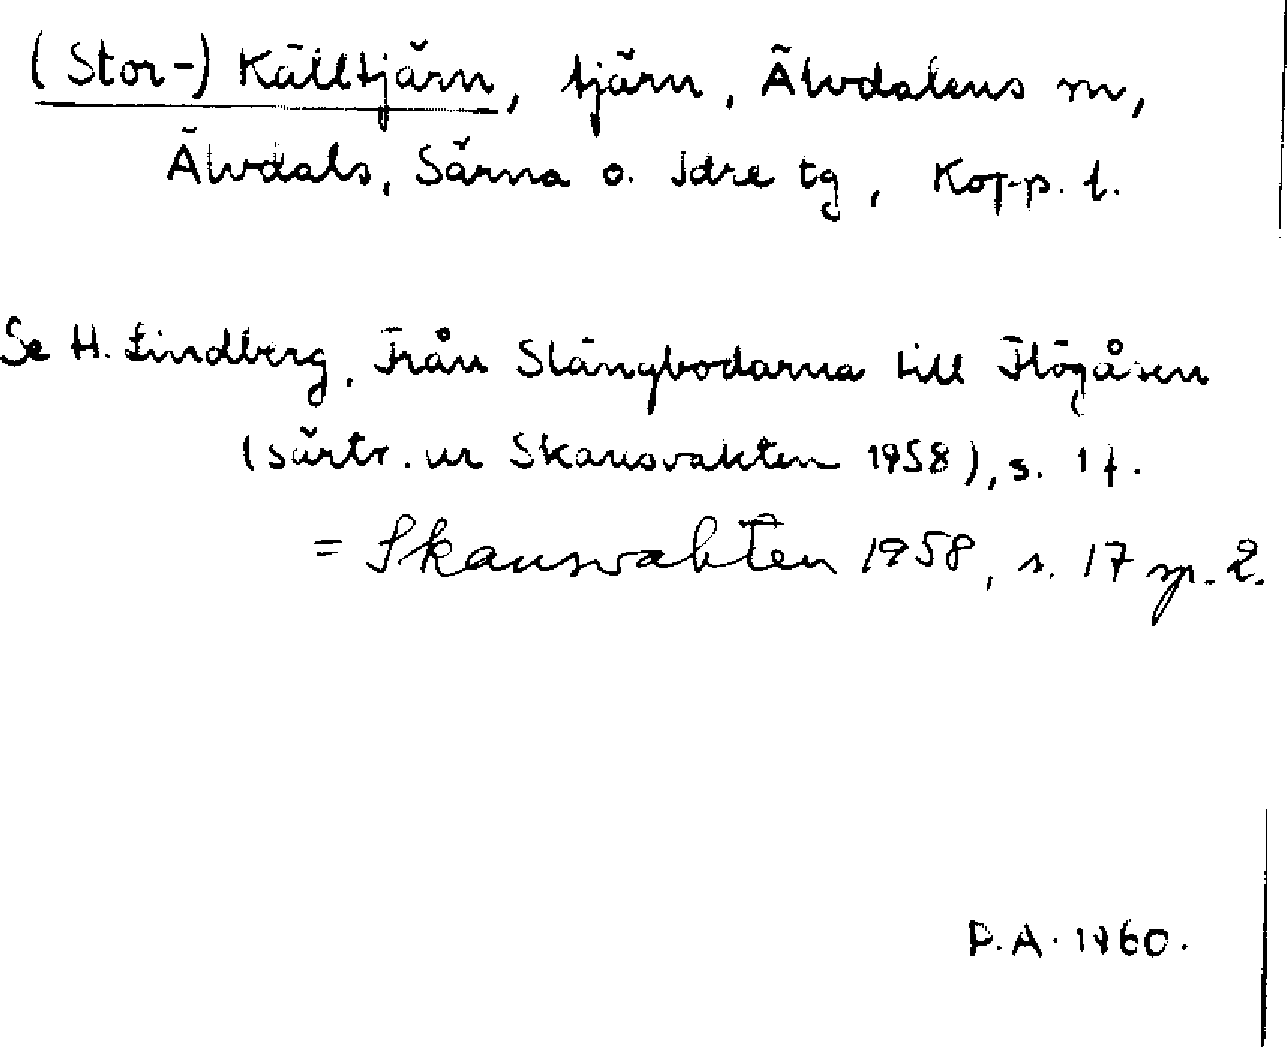 (Stor-) Källtjärn, tjärn, Älvdalens m,
Älvdals, Särna o. Idre tg, Kopp. l.
Se H. Lindberg, Från Slängbodarna till Flögåsen
(särtr. ur Skansvakten 1958), s. 1 f.
= Skansvakten 1958, s. 17 sp. 2.
D.A. 1960.